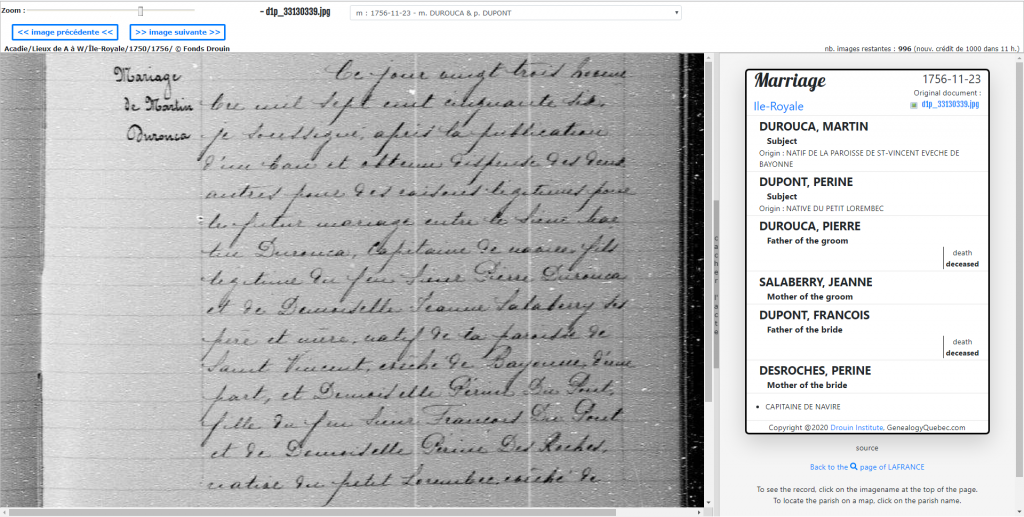 Zoom :
- d1p_33130339.jpg
m : 1756-11-23 - m. DUROUCA & p. DUPONT
<< image précédente <<
>> image suivante >>
Acadie/Lieux de A à W/Île-Royale/1750/1756/ © Fonds Drouin
nb. images restantes : 996 (nouv. crédit de 1000 dans 11 h.)
Mariage
de Martin
Durouca
Ce jour vingt trois novem
bre mil sept cent cinquante six.
je soussigné, après la publication
d'un ban et obtenu dispense des deux
autres pour des raisons legitimes pour
le futur mariage entre le Sieur Mar
tin Durouca, Capitaine de navire, fils
legitime du feu Sieur Pierre Durouca
et de Demoiselle Jeanne Salaberry ses
père et mère, natif de la paroisse de
Saint Vincent, evêché de Bayonne, d'une
part, et Demoiselle Perine Du Pont,
fille du feu Sieur Francois Du Pont
et de Demoiselle Perine Des Roches,
native du petit Lorembec, evêché de
cacher l'acte
Marriage
1756-11-23
Original document :
Ile-Royale
d1p_33130339.jpg
DUROUCA, MARTIN
Subject
Origin : NATIF DE LA PAROISSE DE ST-VINCENT EVECHE DE
BAYONNE
DUPONT, PERINE
Subject
Origin : NATIVE DU PETIT LOREMBEC
DUROUCA, PIERRE
Father of the groom
death
deceased
SALABERRY, JEANNE
Mother of the groom
DUPONT, FRANCOIS
Father of the bride
death
deceased
DESROCHES, PERINE
Mother of the bride
• CAPITAINE DE NAVIRE
Copyright @2020 Drouin Institute, GenealogyQuebec.com
source
Back to the page of LAFRANCE
To see the record, click on the imagename at the top of the page.
To locate the parish on a map, click on the parish name.